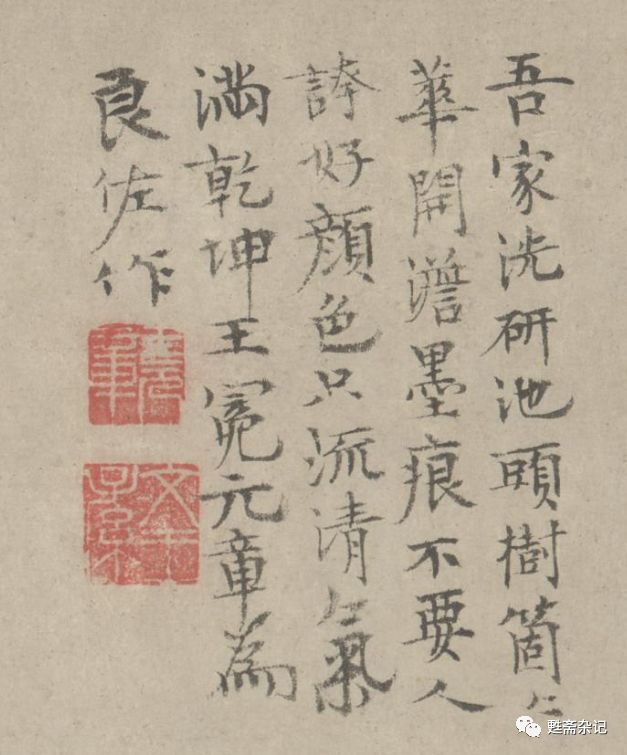 吾家洗研池頭樹箇〻
華開澹墨痕不要人
誇好顔色只流清氣
滿乾坤王冕元章為
良佐作
文王子孫
甦斋杂记